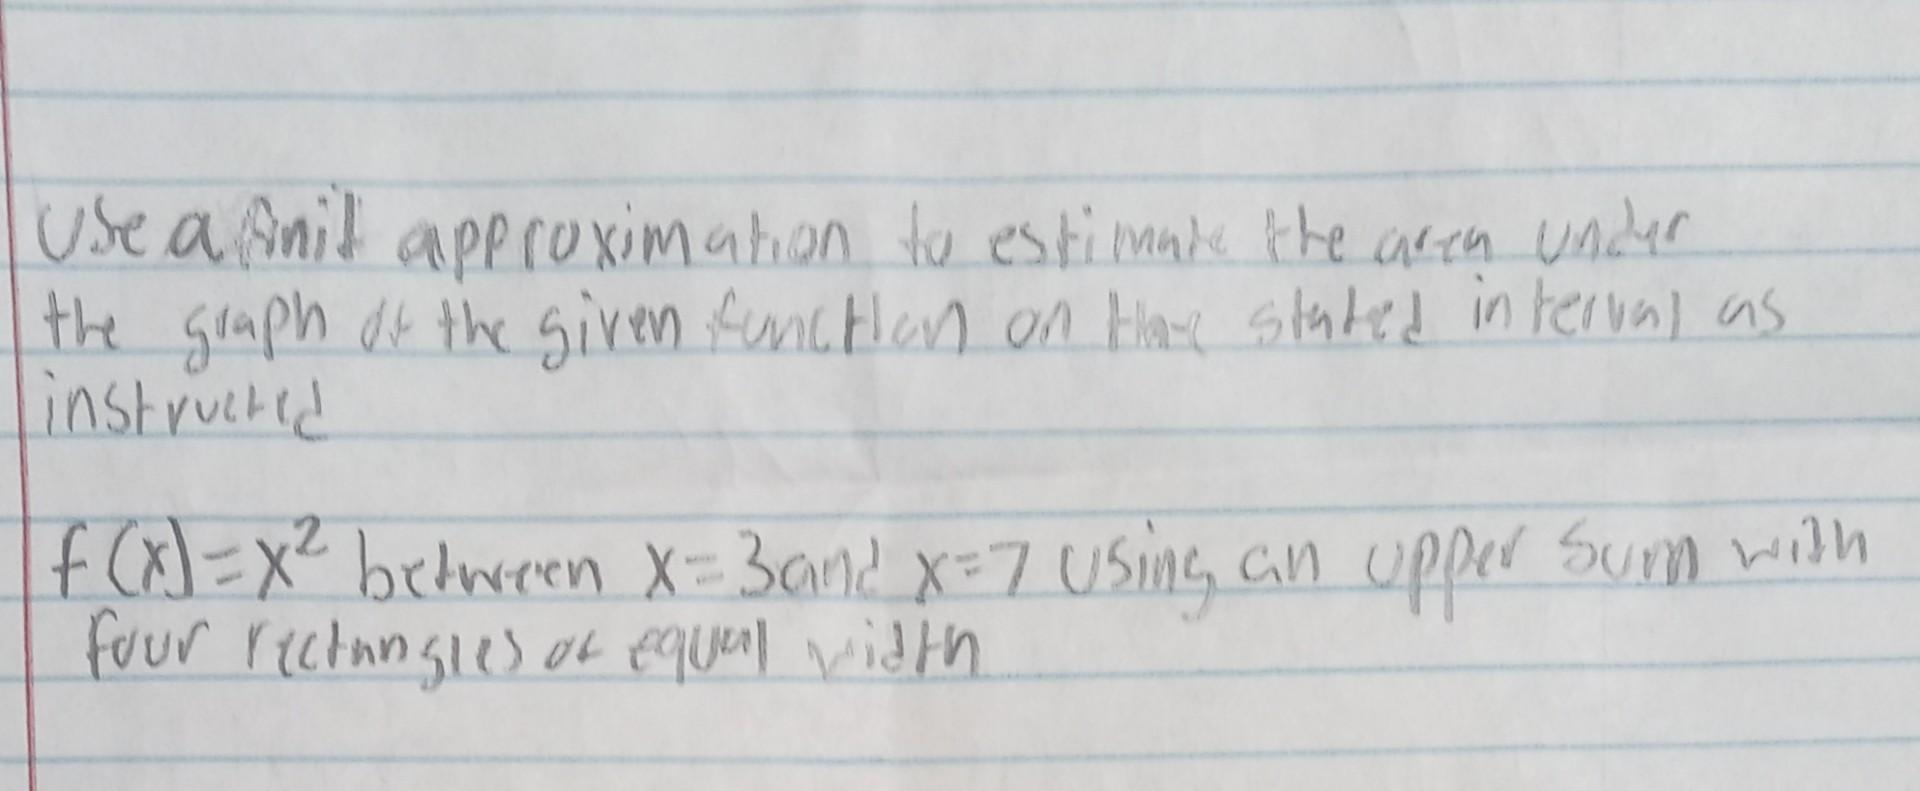 Use a finit approximation to estimate the area under
the graph of the given function on the stated interval as
instructed
f(x)=x² between x=3 and x=7 using an upper sum with
four rectangles of equal width